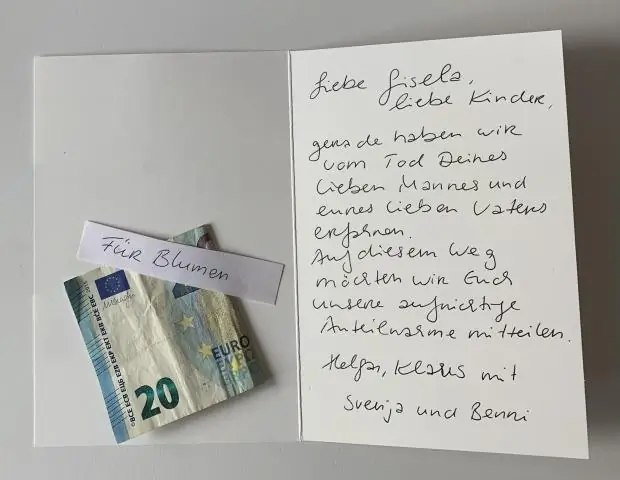 Für Blumen
BCE ECB EZB EKP EKT EKB BCE EBC
EURO
20
Liebe Gisela,
liebe Kinder,
gerade haben wir
vom Tod Deines
lieben Mannes und
eures lieben Vaters
erfahren.
Auf diesem Weg
möchten wir Euch
unsere aufrichtige
Anteilnahme mitteilen.
Helga, Klaus mit
Svenja und Benni